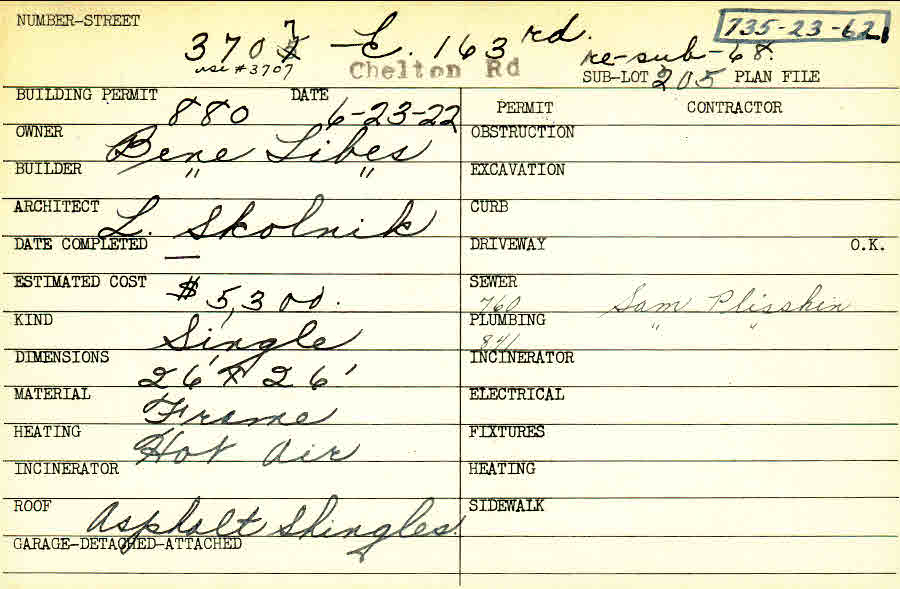 NUMBER-STREET 3707 E. 163rd. 735-23-62
use #3707 Chelton Rd re-sub-68.
SUB-LOT 205 PLAN FILE
BUILDING PERMIT 880 DATE 6-23-22
OWNER Bene Libes
BUILDER " "
ARCHITECT L. Skolnik
DATE COMPLETED —
ESTIMATED COST $5,300.
KIND Single
DIMENSIONS 26' x 26'
MATERIAL Frame
HEATING Hot Air
INCINERATOR
ROOF Asphalt Shingles.
GARAGE-DETACHED-ATTACHED
PERMIT CONTRACTOR
OBSTRUCTION
EXCAVATION
CURB
DRIVEWAY O.K.
SEWER 760 Sam Plisskin
PLUMBING 841 " "
INCINERATOR
ELECTRICAL
FIXTURES
HEATING
SIDEWALK